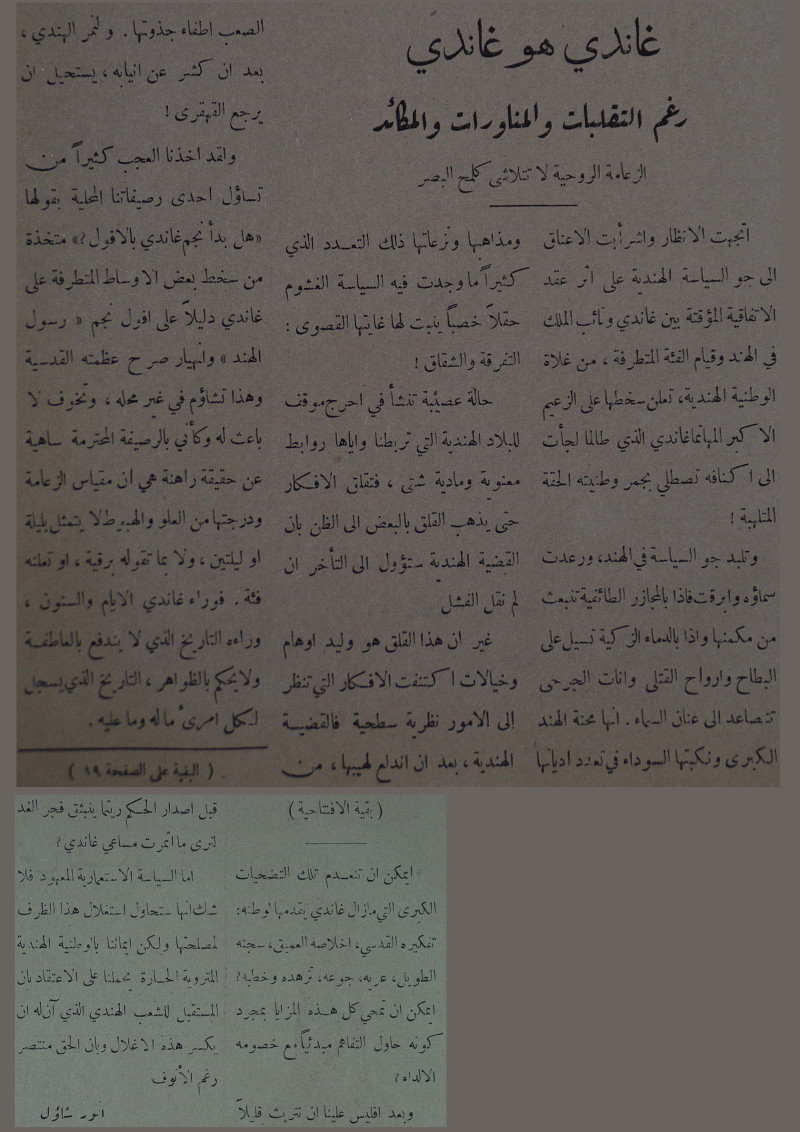 غاندي هو غاندي
رغم التقلبات والمناورات والمكائد
الزعامة الروحية لا تتلاشى كلمح البصر
اتجهت الانظار واشرأبت الاعناق
الى جو السياسة الهندية على اثر عقد
الاتفاقية المؤقتة بين غاندي ونائب الملك
في الهند وقيام الفئة المتطرفة ، من غلاة
الوطنية الهندية، تعلن سخطها على الزعيم
الاكبر المهاتما غاندي الذي طالما لجأت
الى اكنافه تصطلي بجمر وطنيته الحقة
الملتهبة !
وتلبد جو السياسة في الهند، ورعدت
سماؤه وابرقت فاذا بالمجازر الطائفية تنبعث
من مكمنها واذا بالدماء الزكية تسيل على
البطاح وارواح القتلى وانات الجرحى
تتصاعد الى عنان السماء . انها محنة الهند
الكبرى ونكبتها السوداء في تعدد اديانها
ومذاهبها ونزعاتها ذلك التعدد الذي
كثيراً ما وجدت فيه السياسة الغشوم
حقلاً خصباً ينبت لها غايتها القصوى :
التفرقة والشقاق !
حالة عصيبة تنشأ في احرج موقف
للبلاد الهندية التي تربطنا واياها روابط
معنوية ومادية شتى ، فتقلق الافكار
حتى يذهب القلق بالبعض الى الظن بان
القضية الهندية ستؤول الى التأخر ان
لم نقل الفشل
غير ان هذا القلق هو وليد اوهام
وخيالات اكتنفت الافكار التي تنظر
إلى الامور نظرية سطحية فالقضية
الهندية ، بعد ان اندلع لهيبها ، من
الصعب اطفاء جذوتها . والنمر الهندي ،
بعد ان كشر عن انيابه ، يستحيل ان
يرجع القهقرى !
ولقد اخذنا العجب كثيراً من
تساؤل احدى رصيفاتنا المحلية بقولها
«هل بدأ نجم غاندي بالافول ؟» متخذة
من سخط بعض الاوساط المتطرفة على
غاندي دليلاً على افول نجم « رسول
الهند » وانهيار صرح عظمته القدسية
وهذا تشاؤم في غير محله ، وتخوف لا
باعث له وكأني بالرصيفة المحترمة ساهية
عن حقيقة راهنة هي ان مقياس الزعامة
ودرجتها من العلو والهبوط لا يتمثل بليلة
او ليلتين ، ولا بما تقوله برقية ، او تعلنه
فئة . فوراء غاندي الايام والسنون ،
وراءه التاريخ الذي لا يندفع بالعاطفة
ولا يحكم بالظواهر ، التاريخ الذي يسجل
لكل امرىء ما له وما عليه .
( البقية على الصفحة ١٩ )
( بقية الافتتاحية )
ايمكن ان تنعدم تلك التضحيات
الكبرى التي مازال غاندي يقدمها لوطنه :
تفكيره القدسي، اخلاصه العميق، سجنه
الطويل، عريه، جوعه، تزهده وخطبه ؟
ايمكن ان تمحي كل هذه المزايا بمجرد
كونه حاول التفاهم مبدئياً مع خصومه
الالداء ؟
وبعد افليس علينا ان نتريث قليلاً
قبل اصدار الحكم ريثما ينبثق فجر الغد
لنرى ما اثمرت مساعي غاندي ؟
اما السياسة الاستعمارية المعهود فلا
شك انها ستحاول استغلال هذا الظرف
لمصلحتها ولكن ايماننا بالوطنية الهندية
المتروية الجبارة يحملنا على الاعتقاد بان
المستقبل للشعب الهندي الذي آن له ان
يكسر هذه الاغلال وبان الحق منتصر
رغم الأنوف
انور شاؤل